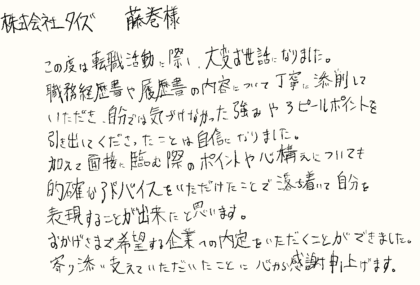 株式会社タイズ　藤巻様
この度は転職活動に際し、大変お世話になりました。
職務経歴書や履歴書の内容について丁寧に添削して
いただき、自分では気づけなかった強みやアピールポイントを
引き出してくださったことは自信になりました。
加えて面接に臨む際のポイントや心構えについても
的確なアドバイスをいただけたことで落ち着いて自分を
表現することが出来たと思います。
おかげさまで希望する企業への内定をいただくことができました。
寄り添い支えていただいたことに心から感謝申し上げます。